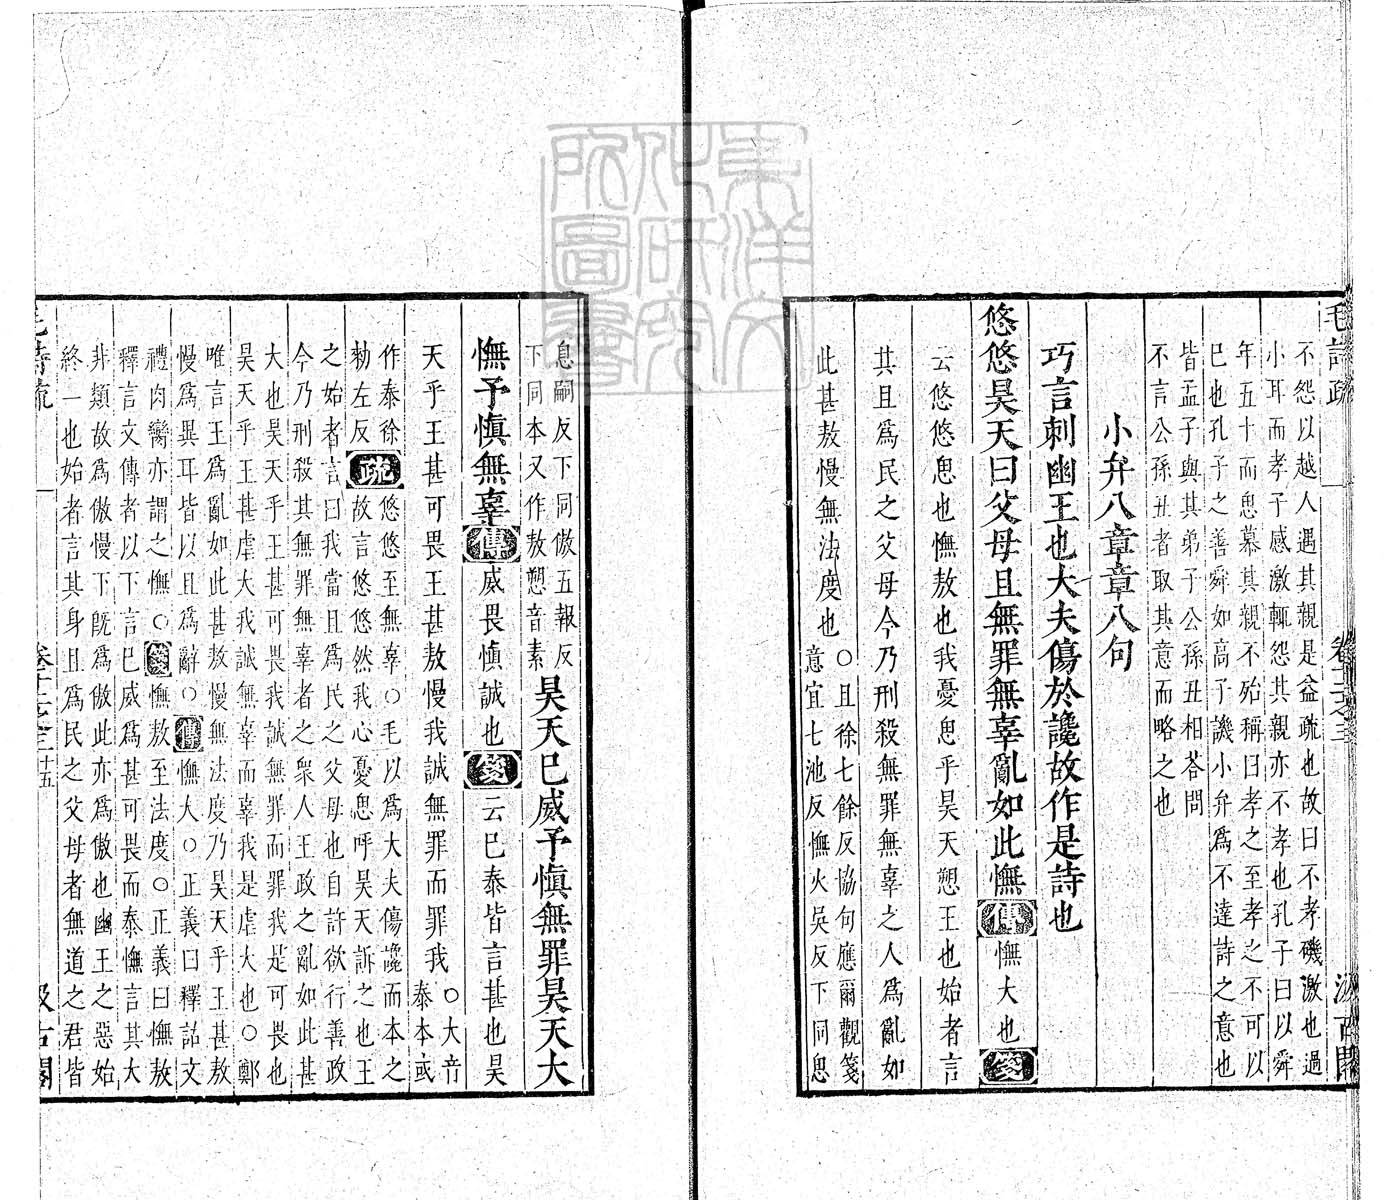 毛詩疏
卷十二之三
汲古閣
不怨以越人遇其親是益疏也故曰不孝磯激也過
小耳而孝子感激輒怨其親亦不孝也孔子曰以舜
年五十而思慕其親不殆稱曰孝之至孝之不可以
已也孔子之善舜如高子譏小弁爲不達詩之意也
皆孟子與其弟子公孫丑相荅問
不言公孫丑者取其意而略之也
小弁八章章八句
巧言刺幽王也大夫傷於讒故作是詩也
悠悠昊天曰父母且無罪無辜亂如此憮傳憮大也箋
云悠悠思也憮敖也我憂思乎昊天愬王也始者言
其且爲民之父母今乃刑殺無罪無辜之人爲亂如
此甚敖慢無法度也
○且徐七餘反協句應爾觀箋
意宜七池反憮火吳反下同思
息嗣反下同傲五報反
下同本又作敖愬音素
昊天已威予慎無罪昊天大
憮予慎無辜傳威畏慎誠也箋云已泰皆言甚也昊
天乎王甚可畏王甚敖慢我誠無罪而罪我
○大音
泰本或
作泰徐
勑左反
疏
悠悠至無辜○毛以爲大夫傷讒而本之
故言悠悠然我心憂思呼昊天訴之也王
之始者言曰我當且爲民之父母也自許欲行善政
今乃刑殺其無罪無辜者之衆人王政之亂如此甚
大也昊天乎王甚可畏我誠無罪而罪我是可畏也
昊天乎王甚虐大我誠無辜而辜我是虐大也○鄭
唯言王爲亂如此甚敖慢無法度乃昊天乎王甚敖
慢爲異耳皆以且爲辭○傳憮大○正義曰釋詁文
禮肉臠亦謂之憮○箋憮敖至法度○正義曰憮敖
釋言文傳者以下言已威爲甚可畏而泰憮言其大
非類故爲傲慢下既爲傲此亦爲傲也幽王之惡始
終一也始者言其身且爲民之父母者無道之君皆
毛詩疏
卷十二之三
十五
汲古閣
東洋文化研究所圖書